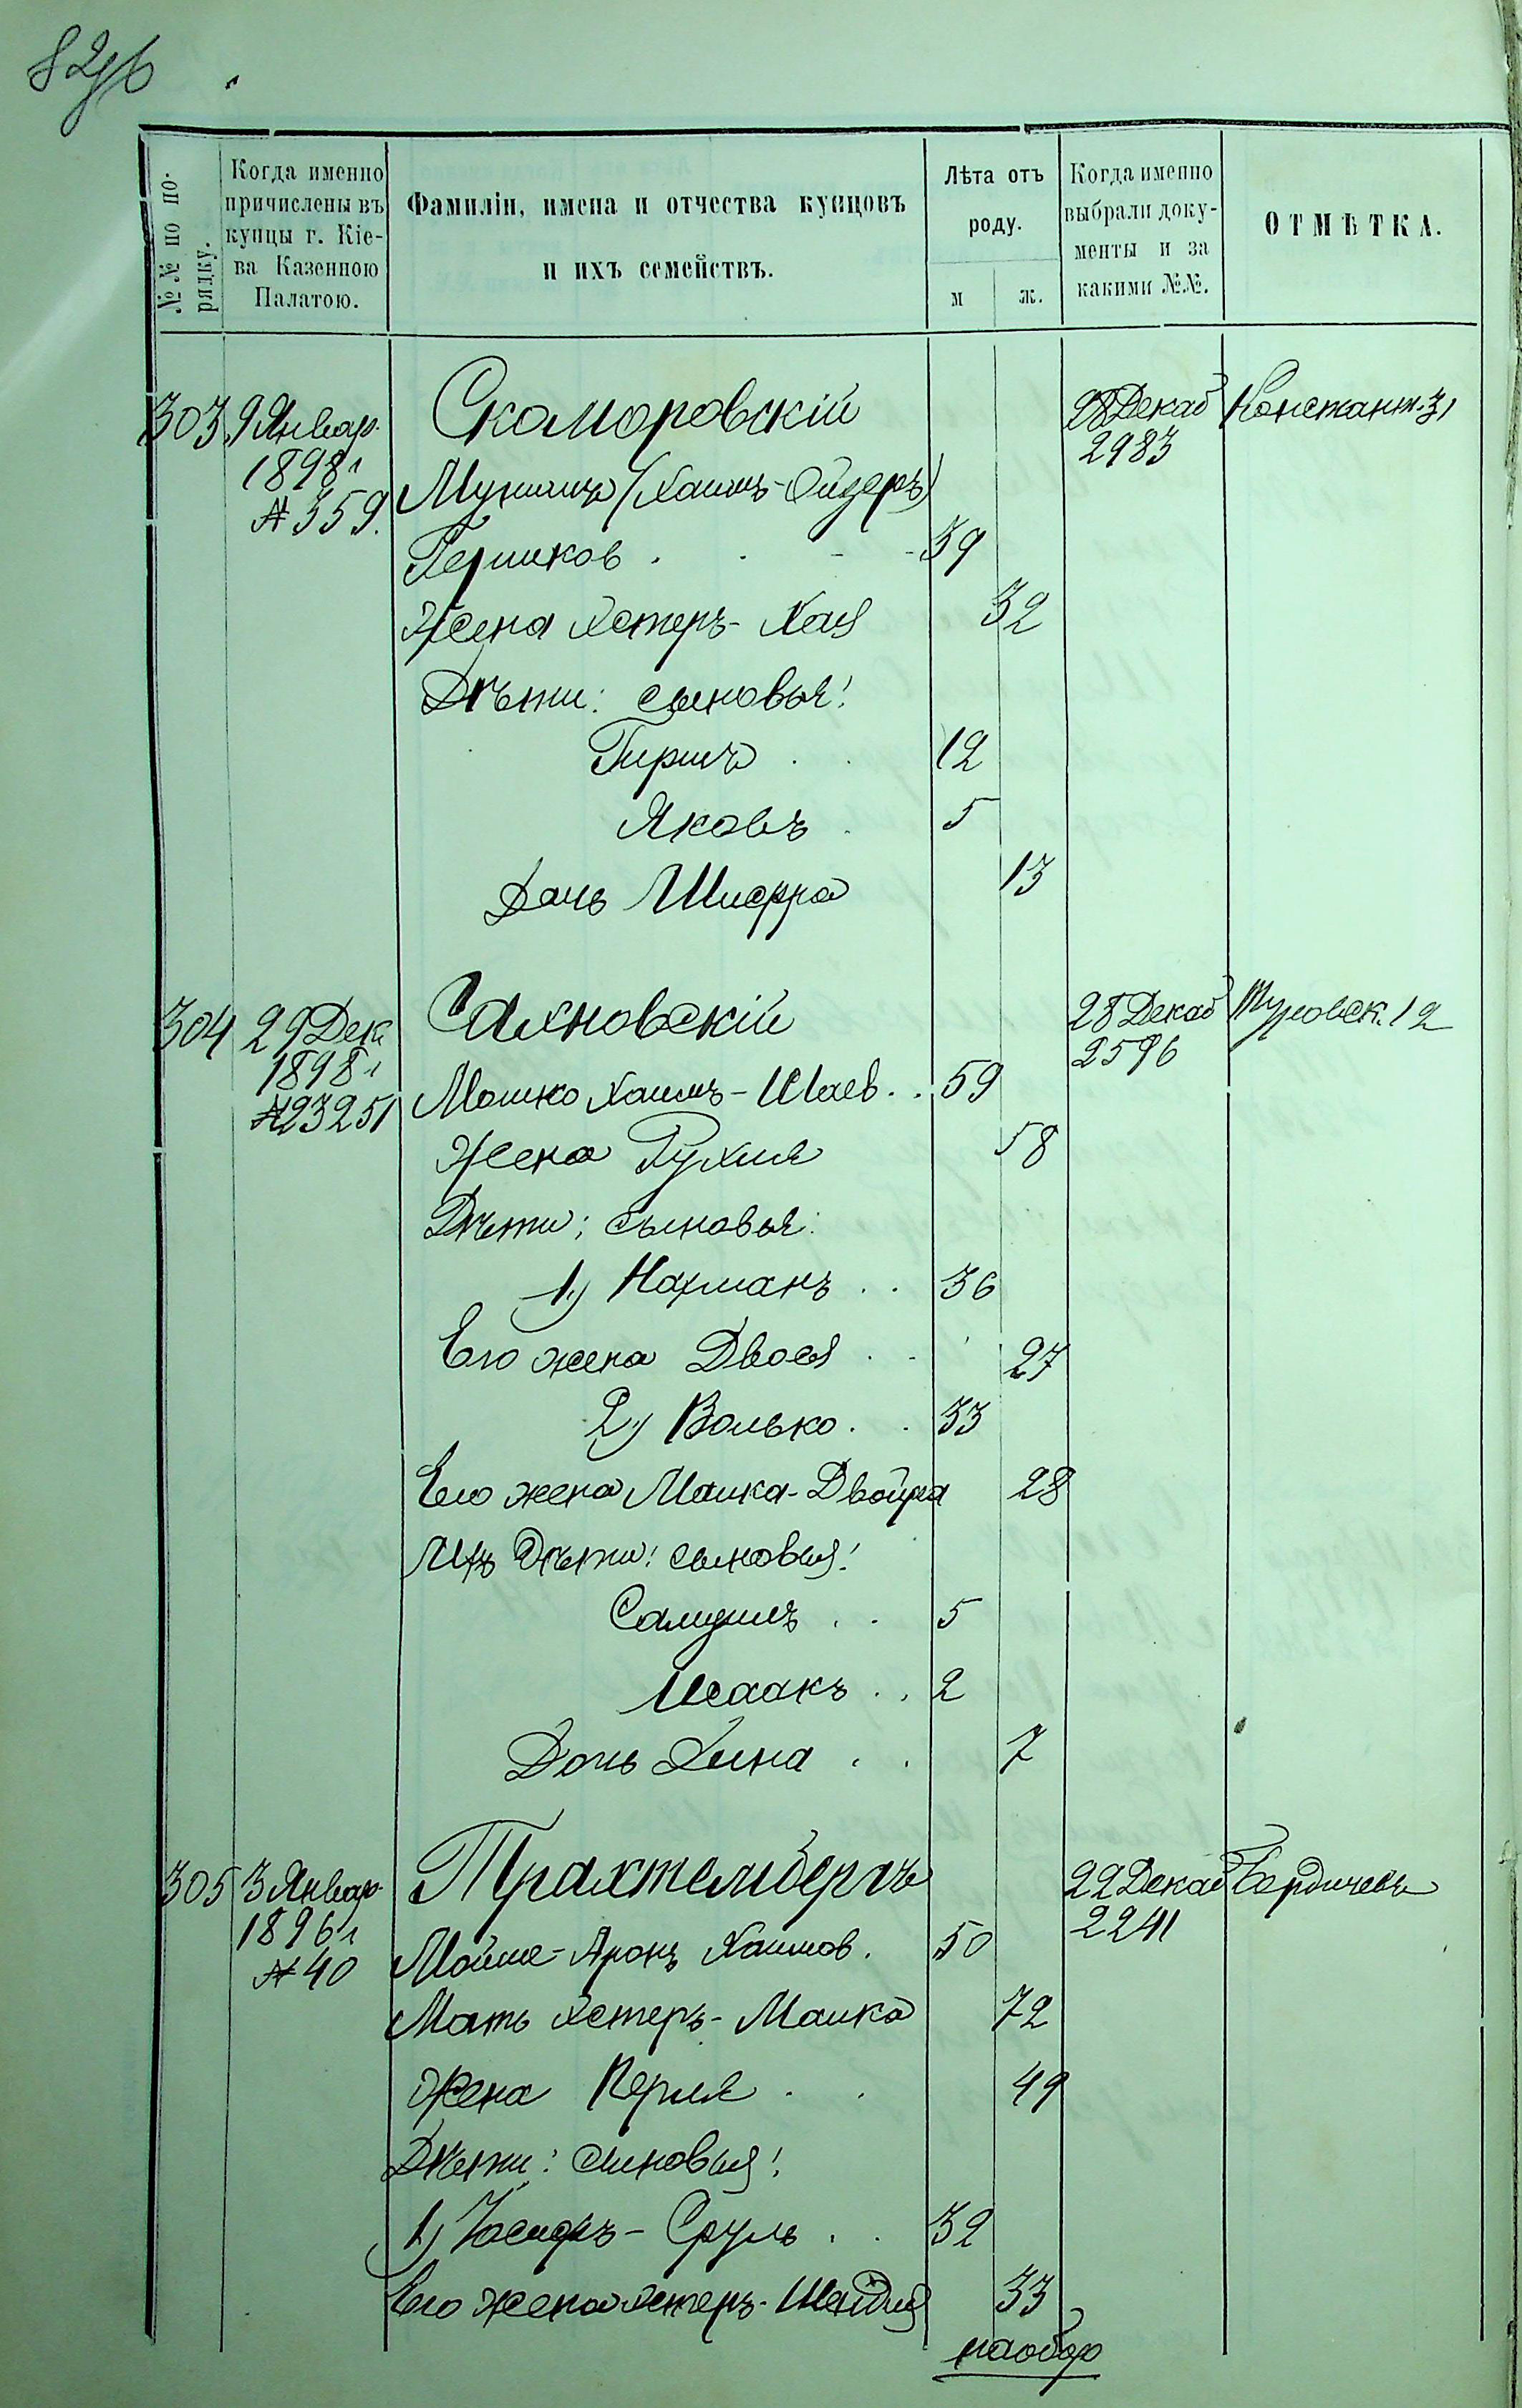 №№ по по-
рядку.
Когда именно
причислены въ
купцы г. Кіе-
ва Казенною
Палатою.
Фамиліи, имена и отчества купцовъ
и ихъ семействъ.
Лѣта отъ
роду.
м ж.
Когда именно
выбрали доку-
менты и за
какими №№.
ОТМѢТКА.
303 9 Январ. Скоморовскій 28 Декаб Константин. 31
1898 г 2983
№ 359. (Хаимъ-Ойзеръ)
Гершков . . - - 39
Жена Хая 32
Дѣти: сыновья:
Гершъ . . 12
Яковъ . 5
Дочь Шифра 13
304 29 Дек Сахновскій 28 Декаб Туровск. 12
1898 г 2596
№ 23251 Мошко Хаимъ-Шаев. . 59
Жена Рухля 58
Дѣти: сыновья:
1) Нахманъ . . 36
Его жена Двося . . 27
2) Волько . . 33
Его жена Малка-Двойра 28
Ихъ дѣти: сыновья:
Самуилъ . . 5
Исаакъ . . 2
Дочь Хина . . 7
305 3 Январ. Трахтембергъ 22 Декаб Бердичевъ
1896 г 2241
№ 40 Мойше-Аронъ Хаимов. 50
Мать Эстеръ-Малка 72
Жена Перля . . 49
Дѣти: сыновья:
1) Іосифъ-Сруль . . 32
Его жена Эстеръ-Шейдля 33
на обор